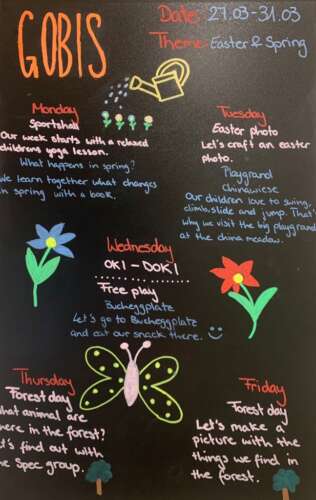 GOBIS
Date: 27.03-31.03
Theme: Easter & Spring
Monday
Sportshall
Our week starts with a relaxed
childrens yoga lesson.
What happens in spring?
We learn together what changes
in spring with a book.
Tuesday
Easter photo
Let's craft an easter
photo.
Playground
Chinawiese
Our children love to swing,
climb, slide and jump. That's
why we visit the big playground
at the china meadow.
Wednesday
OKI-DOKI
Free play
Bucheggplatz
Let's go to Bucheggplatz
and eat our snack there.
Thursday
Forest day
What animal are
there in the forest?
Let's find out with
the Spec group.
Friday
Forest day
Let's make a
picture with the
things we find in
the forest.